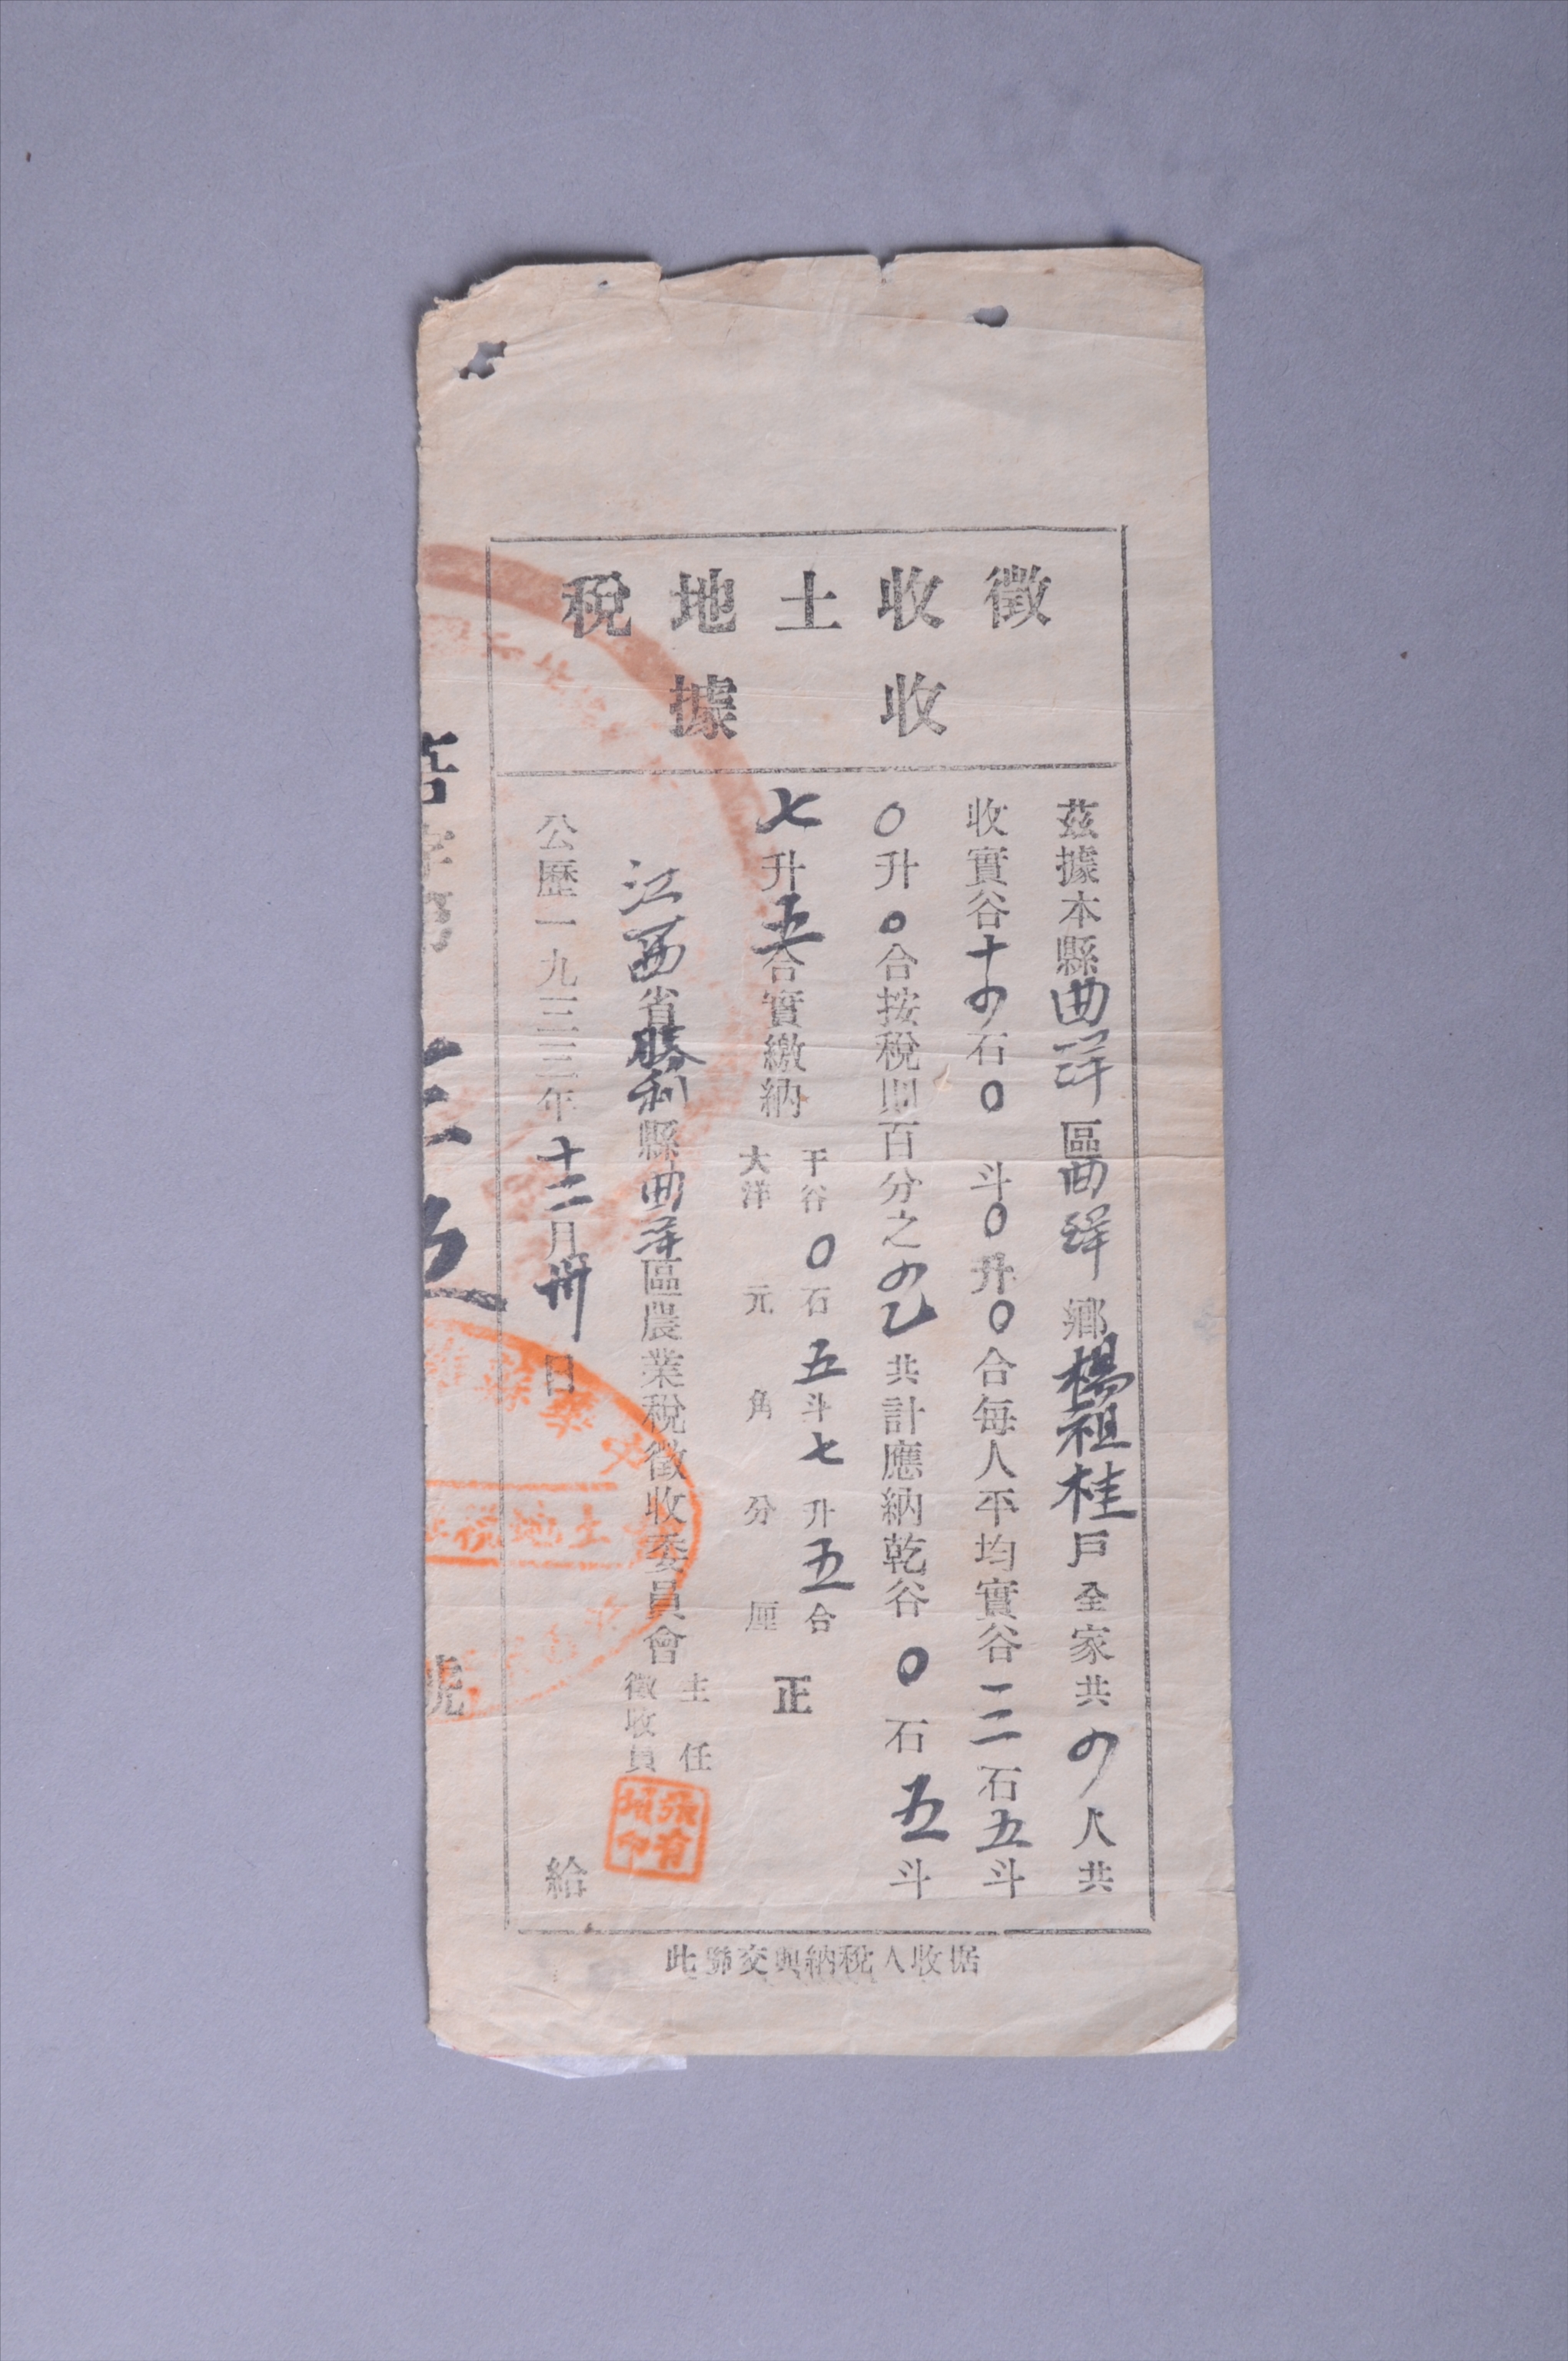 徵收土地稅
收據
茲據本縣曲洋區曲洋鄉楊祖桂戶全家共四人共
收實谷十四石0斗0升0合每人平均實谷三石五斗
0升0合按稅則百分之四乙共計應納乾谷0石五斗
七升五合實繳納
干谷0石五斗七升五合
大洋 元 角 分 厘
正
江西省勝利縣曲洋區農業稅徵收委員會
主任
徵收員
公歷一九三三年十二月卅日 給
字第
號
土地稅
此聯交與納稅人收据